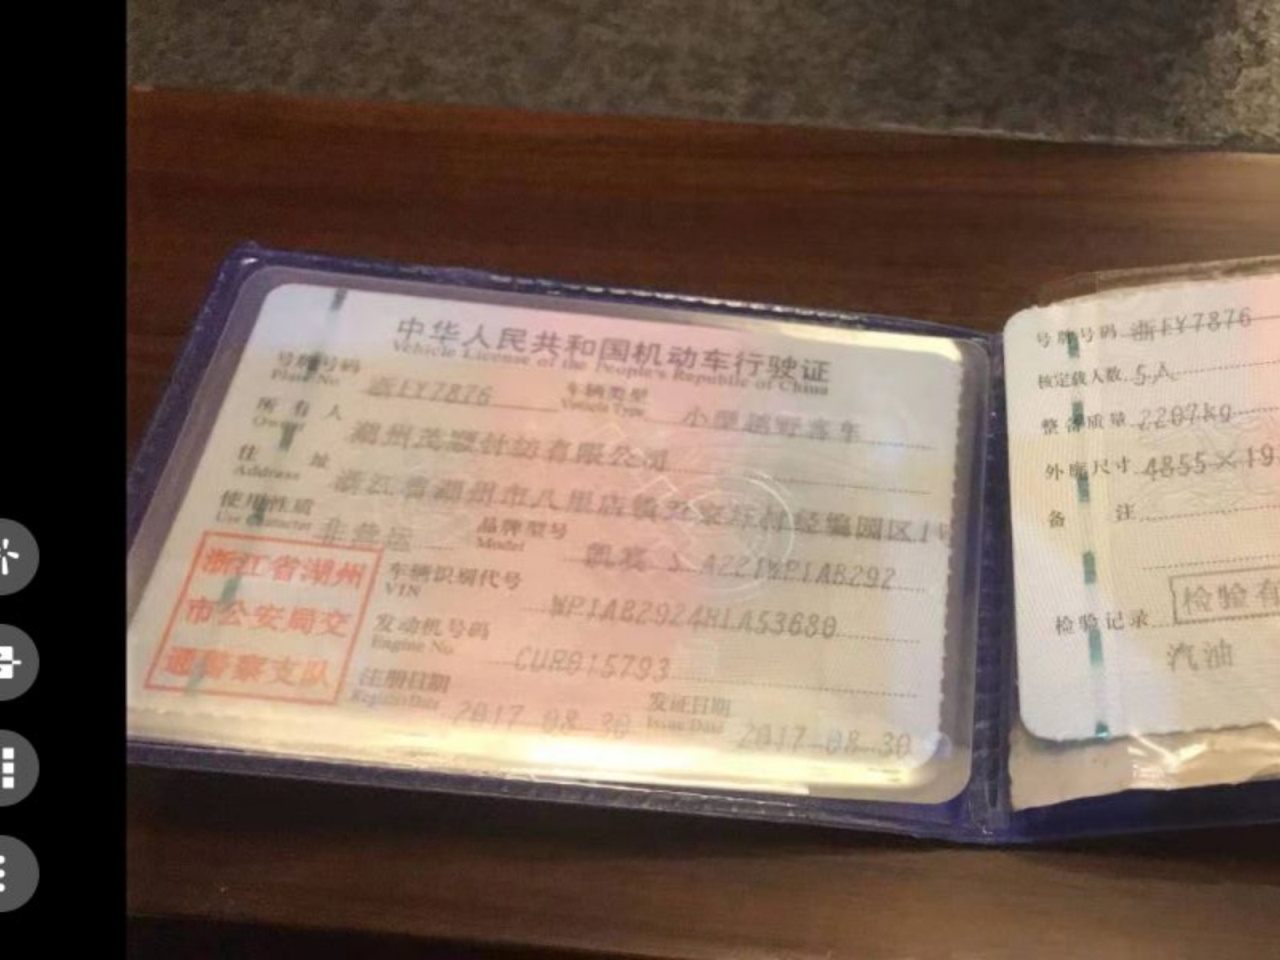 中华人民共和国机动车行驶证
Vehicle License of the People's Republic of China
号牌号码 浙EY7876 车辆类型 小型越野客车
Plate No. Vehicle Type
所有人 湖州 针纺有限公司
Owner
住址 浙江省湖州市八里店镇 村经编园区1
Address
使用性质 非营运 品牌型号 A221WP1AB292
Use Character Model
浙江省湖州
市公安局交
通警察支队
车辆识别代号 WP1AB2924HLA53680
VIN
发动机号码 CUR015793
Engine No.
注册日期 2017-08-30 发证日期 2017-08-30
Register Date Issue Date
号牌号码 浙EY7876
核定载人数 5人
整备质量 2207kg
外廓尺寸 4855×19
备注
检验记录 检验有
汽油